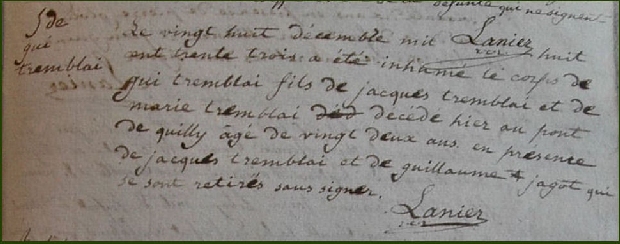 de la defunte qui ne signent
Lanier
vic
S. de
gui
tremblai
Le vingt huit décembre mil huit
cnt trente trois a été inhumé le corps de
gui tremblai fils de jacques tremblai et de
marie tremblai décédé hier au pont
de quilly âge de vingt deux ans. en présence
de jacques tremblai et de guillaume jagot qui
se sont retirés sans signer.
Lanier
vic